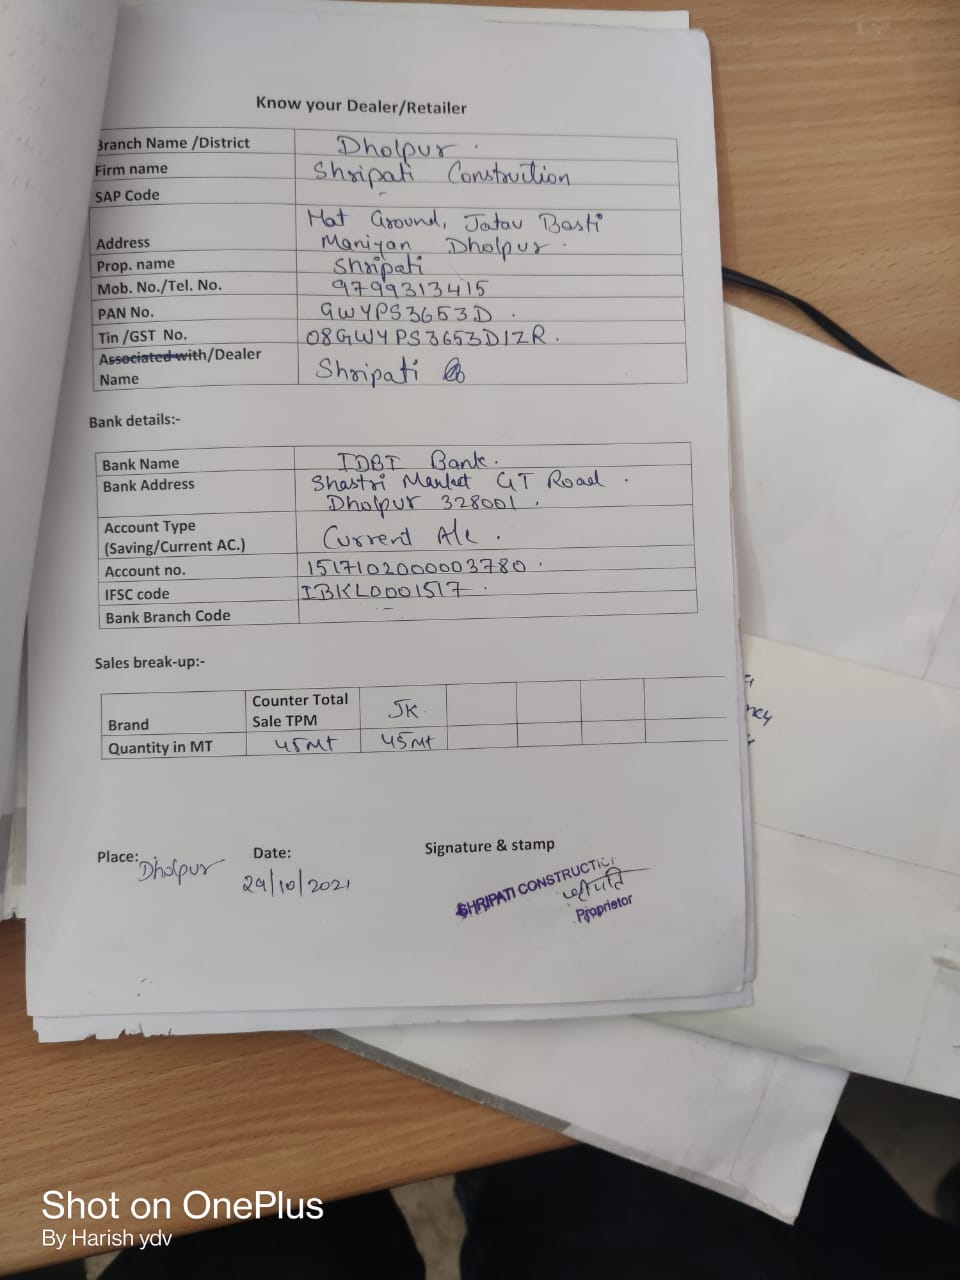 Know your Dealer/Retailer
Branch Name /District Dholpur .
Firm name Shripati Construction
SAP Code -
Address Hat Ground, Jatav Basti
Maniyan Dholpur .
Prop. name Shripati
Mob. No./Tel. No. 9799313415
PAN No. GWYPS3653D .
Tin /GST No. 08GWYPS3653D1ZR .
Associated with/Dealer
Name Shripati
Bank details:-
Bank Name IDBI Bank .
Bank Address Shastri Market GT Road .
Dholpur 328001 .
Account Type
(Saving/Current AC.) Current A/c .
Account no. 1517102000003780 .
IFSC code IBKL0001517 .
Bank Branch Code -
Sales break-up:-
Brand Counter Total
Sale TPM JK.
Quantity in MT 45Mt 45Mt
Place: Dholpur Date: 29/10/2021 Signature & stamp
SHRIPATI CONSTRUCTION
श्रीपति
Proprietor
Shot on OnePlus
By Harish ydv